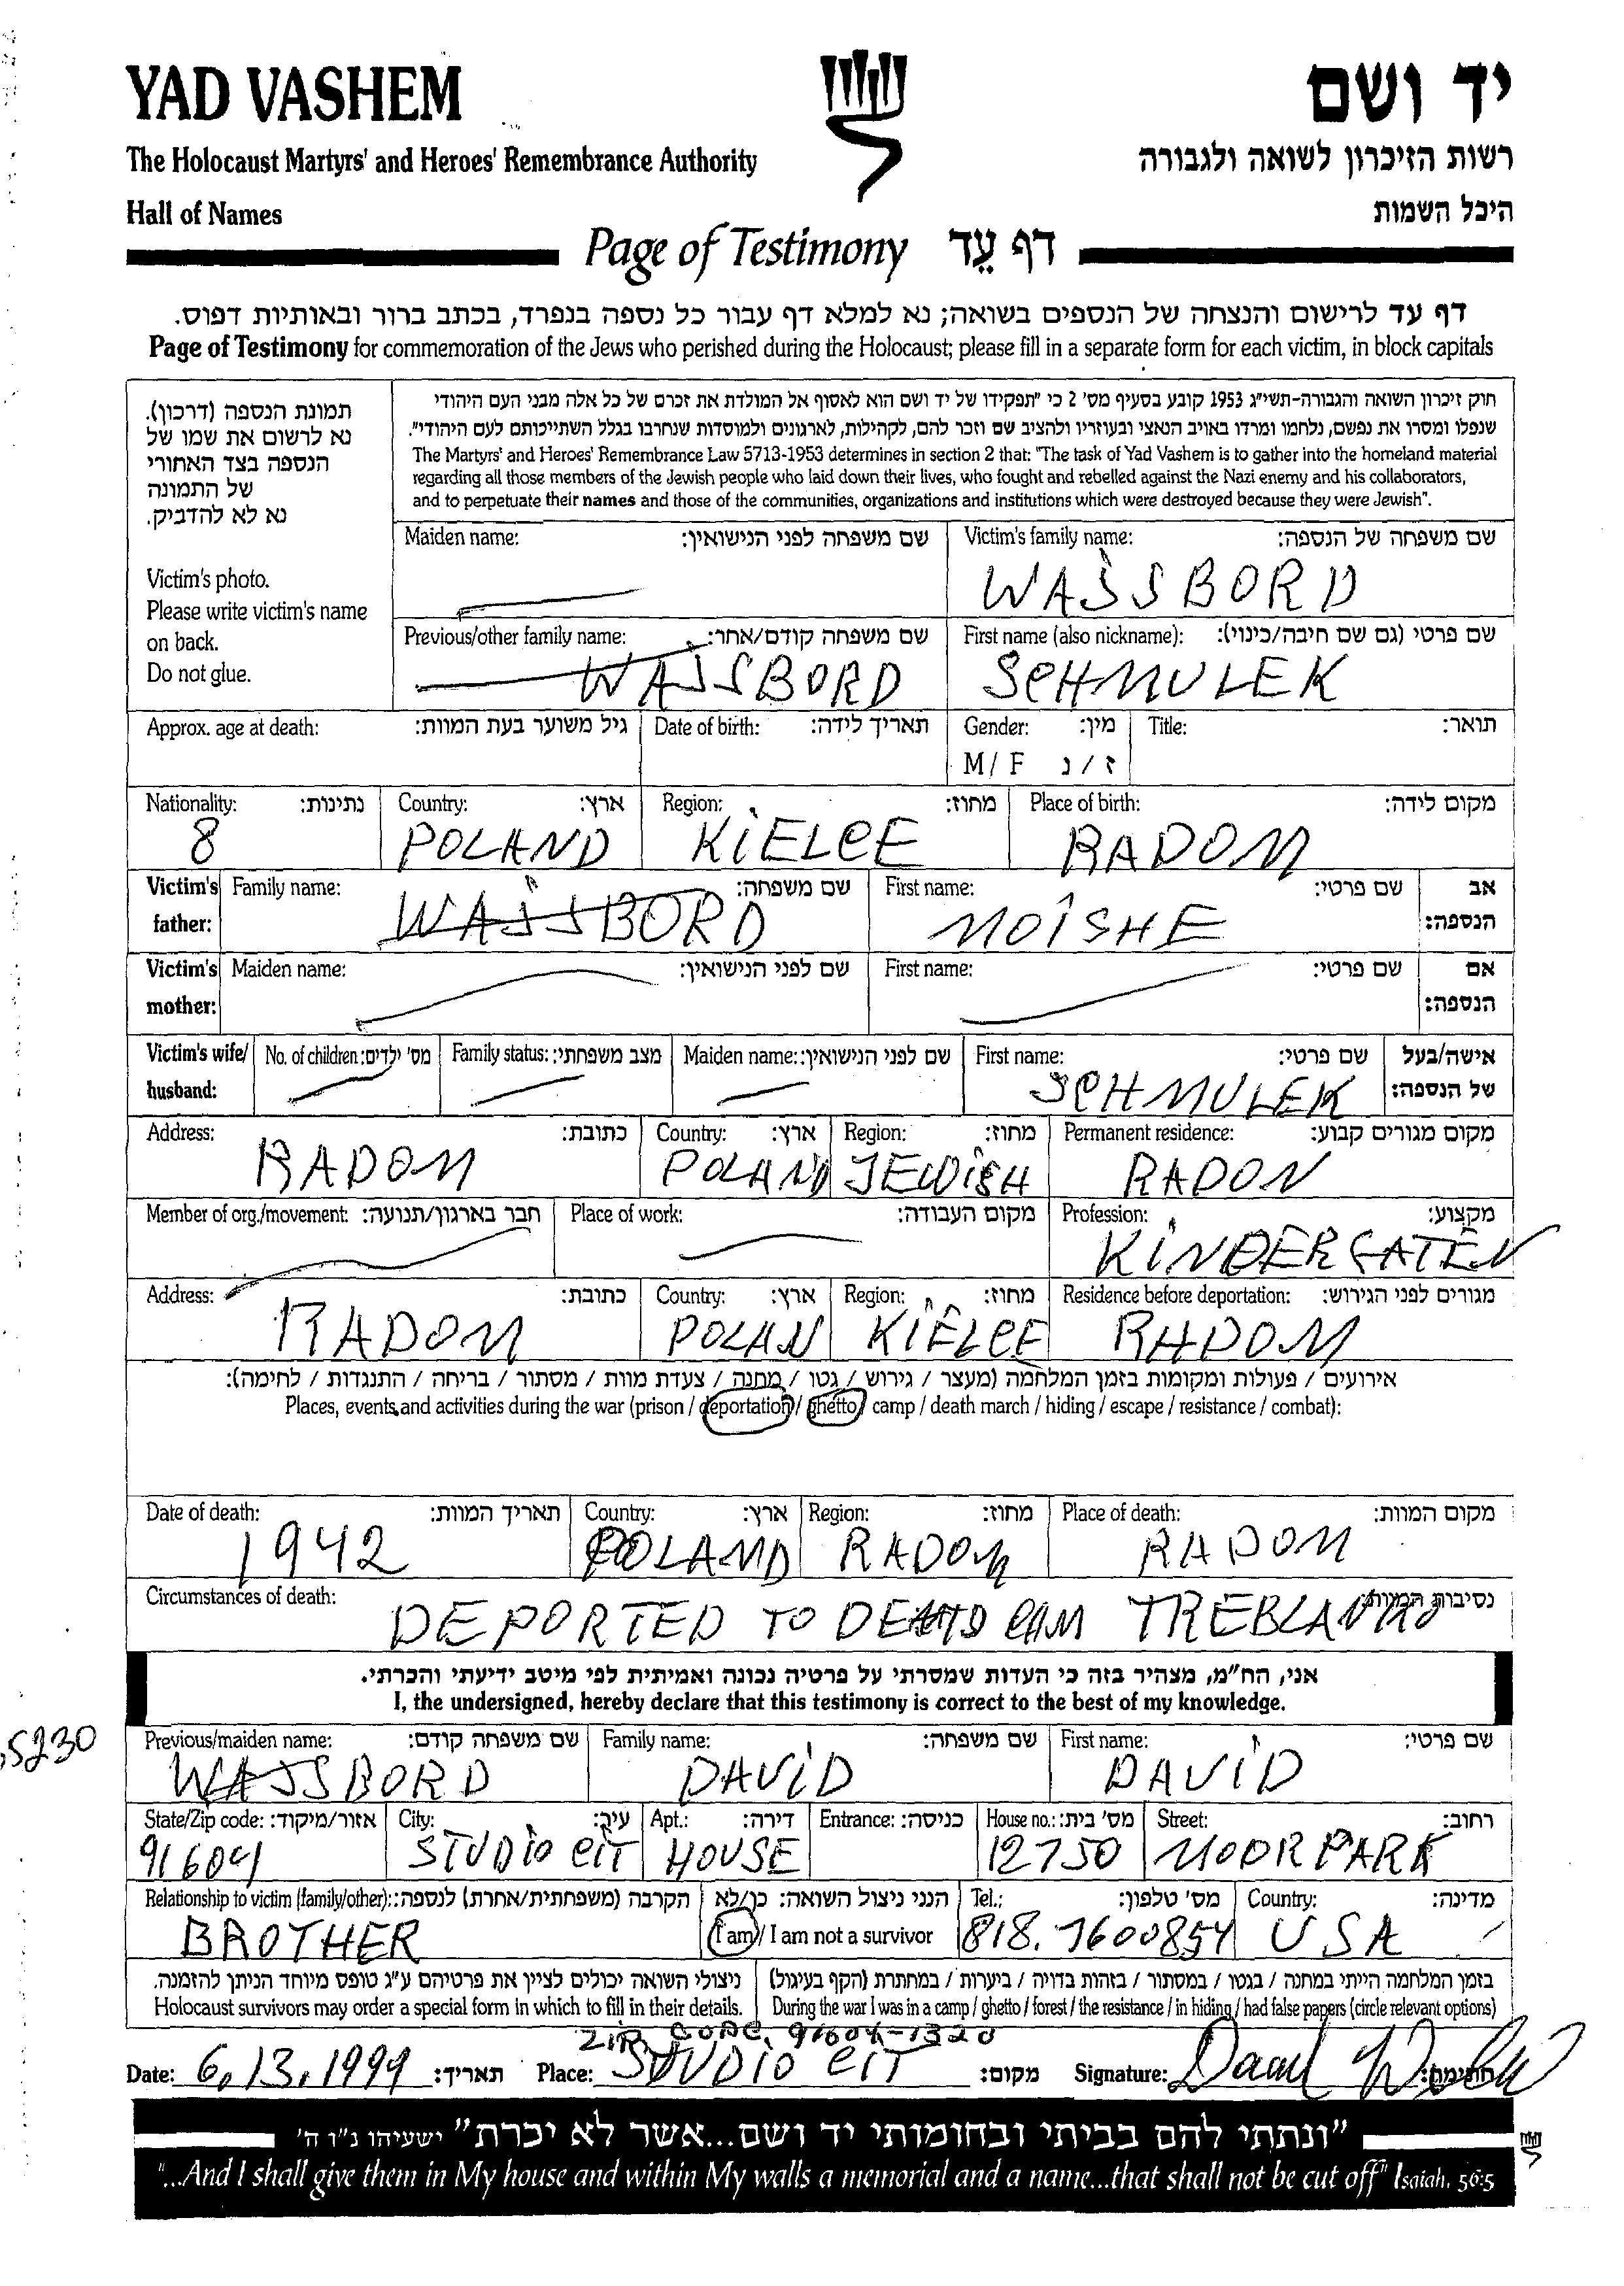 YAD VASHEM יד ושם
The Holocaust Martyrs' and Heroes' Remembrance Authority רשות הזיכרון לשואה ולגבורה
Hall of Names היכל השמות
Page of Testimony דף עֵד
דף עד לרישום והנצחה של הנספים בשואה; נא למלא דף עבור כל נספה בנפרד, בכתב ברור ובאותיות דפוס.
Page of Testimony for commemoration of the Jews who perished during the Holocaust; please fill in a separate form for each victim, in block capitals
תמונת הנספה (דרכון).
נא לרשום את שמו של
הנספה בצד האחורי
של התמונה
נא לא להדביק.
Victim's photo.
Please write victim's name
on back.
Do not glue.
חוק זיכרון השואה והגבורה-תשי"ג 1953 קובע בסעיף מס' 2 כי "תפקידו של יד ושם הוא לאסוף אל המולדת את זכרם של כל אלה מבני העם היהודי
שנפלו ומסרו את נפשם, נלחמו ומרדו באויב הנאצי ובעוזריו ולהציב שם וזכר להם, לקהילות, לארגונים ולמוסדות שנחרבו בגלל השתייכותם לעם היהודי".
The Martyrs' and Heroes' Remembrance Law 5713-1953 determines in section 2 that: "The task of Yad Vashem is to gather into the homeland material
regarding all those members of the Jewish people who laid down their lives, who fought and rebelled against the Nazi enemy and his collaborators,
and to perpetuate their names and those of the communities, organizations and institutions which were destroyed because they were Jewish".
Maiden name: שם משפחה לפני הנישואין: Victim's family name: שם משפחה של הנספה:
WAJSBORD
Previous/other family name: שם משפחה קודם/אחר: First name (also nickname): שם פרטי (גם שם חיבה/כינוי):
WAJSBORD SCHMULEK
Approx. age at death: גיל משוער בעת המוות: Date of birth: תאריך לידה: Gender: מין: Title: תואר:
M / F ז / נ
Nationality: נתינות: Country: ארץ: Region: מחוז: Place of birth: מקום לידה:
8 POLAND KiELCE RADOM
Victim's father: Family name: שם משפחה: First name: שם פרטי: אב הנספה:
WAJSBORD MOiSHE
Victim's mother: Maiden name: שם לפני הנישואין: First name: שם פרטי: אם הנספה:
Victim's wife/ husband: No. of children: מס' ילדים: Family status: מצב משפחתי: Maiden name: שם לפני הנישואין: First name: שם פרטי: אישה/בעל של הנספה:
SCHMULEK
Address: כתובת: Country: ארץ: Region: מחוז: Permanent residence: מקום מגורים קבוע:
RADOM POLAND JEWiSH RADON
Member of org./movement: חבר בארגון/תנועה: Place of work: מקום העבודה: Profession: מקצוע:
KiNDERGATEN
Address: כתובת: Country: ארץ: Region: מחוז: Residence before deportation: מגורים לפני הגירוש:
RADOM POLAN KiELCE RADOM
אירועים / פעולות ומקומות בזמן המלחמה (מעצר / גירוש / גטו / מחנה / צעדת מוות / מסתור / בריחה / התנגדות / לחימה):
Places, events and activities during the war (prison / deportation / ghetto / camp / death march / hiding / escape / resistance / combat):
Date of death: תאריך המוות: Country: ארץ: Region: מחוז: Place of death: מקום המוות:
1942 POLAND RADOM RADOM
Circumstances of death: נסיבות המוות:
DEPORTED TO CAM
אני, הח"מ, מצהיר בזה כי העדות שמסרתי על פרטיה נכונה ואמיתית לפי מיטב ידיעתי והכרתי.
I, the undersigned, hereby declare that this testimony is correct to the best of my knowledge.
5230
Previous/maiden name: שם משפחה קודם: Family name: שם משפחה: First name: שם פרטי:
WAJSBORD DAViD DAViD
State/Zip code: אזור/מיקוד: City: עיר: Apt.: דירה: Entrance: כניסה: House no.: מס' בית: Street: רחוב:
91604 STUDiO CiT HOUSE 12750 MOORPARK
Relationship to victim (family/other): הקרבה (משפחתית/אחרת) לנספה: הנני ניצול השואה: כן/לא Tel.: מס' טלפון: Country: מדינה:
BROTHER I am / I am not a survivor 818.7600854 USA
ניצולי השואה יכולים לציין את פרטיהם ע"ג טופס מיוחד הניתן להזמנה. בזמן המלחמה הייתי במחנה / בגטו / במסתור / בזהות בדויה / ביערות / במחתרת (הקף בעיגול)
Holocaust survivors may order a special form in which to fill in their details. During the war I was in a camp / ghetto / forest / the resistance / in hiding / had false papers (circle relevant options)
ZIP CODE. 91604-1320
Date: 6.13.1999 תאריך: Place: STUDiO CiT מקום: Signature: חתימה:
"ונתתי להם בביתי ובחומותי יד ושם...אשר לא יכרת" ישעיהו נ"ו ה'
"...And I shall give them in My house and within My walls a memorial and a name...that shall not be cut off" Isaiah, 56:5